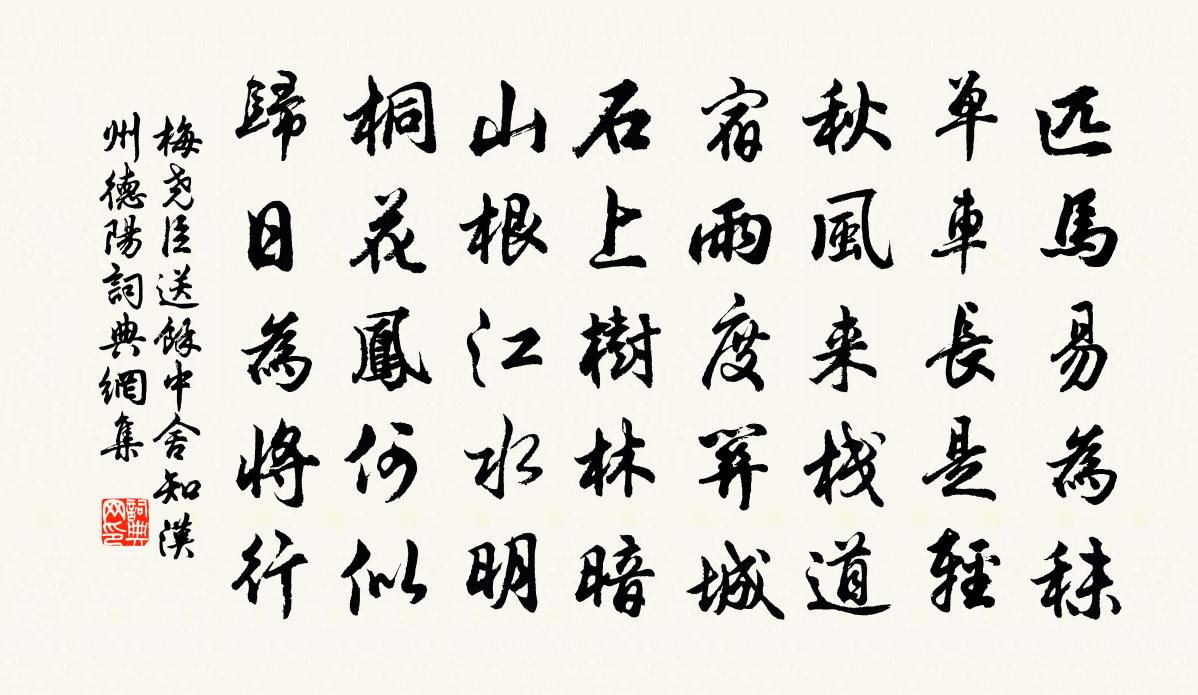 匹馬易為秣
單車長是輕
秋風来棧道
宿雨度關城
石上樹林暗
山根江水明
桐花鳳何似
歸日為將行
梅堯臣送餘中舍知漢
州德陽詞典網集
詞典
网印